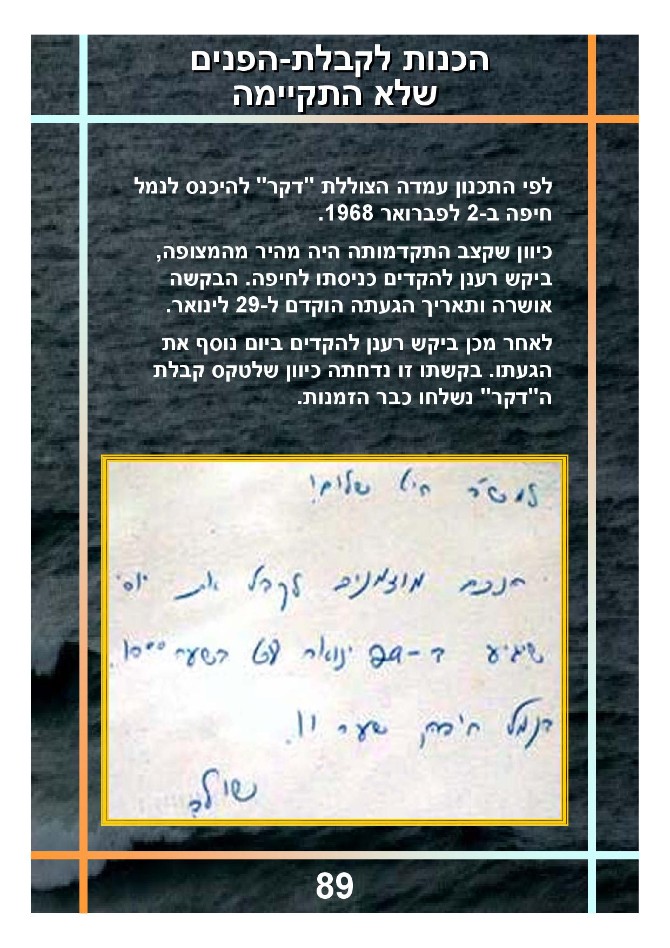 הכנות לקבלת-הפנים
שלא התקיימה
לפי התכנון עמדה הצוללת "דקר" להיכנס לנמל
חיפה ב-2 לפברואר 1968.
כיוון שקצב התקדמותה היה מהיר מהמצופה,
ביקש רענן להקדים כניסתו לחיפה. הבקשה
אושרה ותאריך הגעתה הוקדם ל-29 לינואר.
לאחר מכן ביקש רענן להקדים ביום נוסף את
הגעתו. בקשתו זו נדחתה כיוון שלטקס קבלת
ה"דקר" נשלחו כבר הזמנות.
שלום!
הנכם מוזמנים לקבל את יוסי
שיגיע ב-29 ינואר בשעה 10⁰⁰.
בנמל חיפה שער 11.
שולה
89